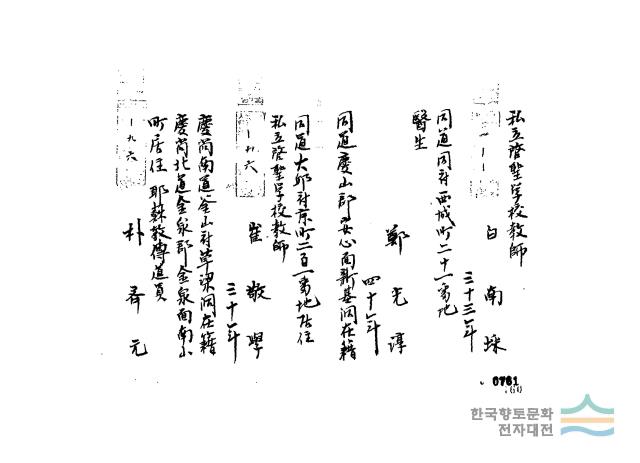 私立啓聖学校教師
一一一
白南埰
三十三年
同道同府西城町二十一番地
醫生
鄭光淳
四十一年
同道慶山郡安心面新基洞在籍
同道大邱府京町二百一番地居住
私立啓聖学校教師
一九六
崔敬學
三十一年
慶尚南道釜山府草梁洞在籍
慶尚北道金泉郡金泉面南山
町居住 耶蘇教傳道員
一九六
朴齊元
0761
한국향토문화
전자대전